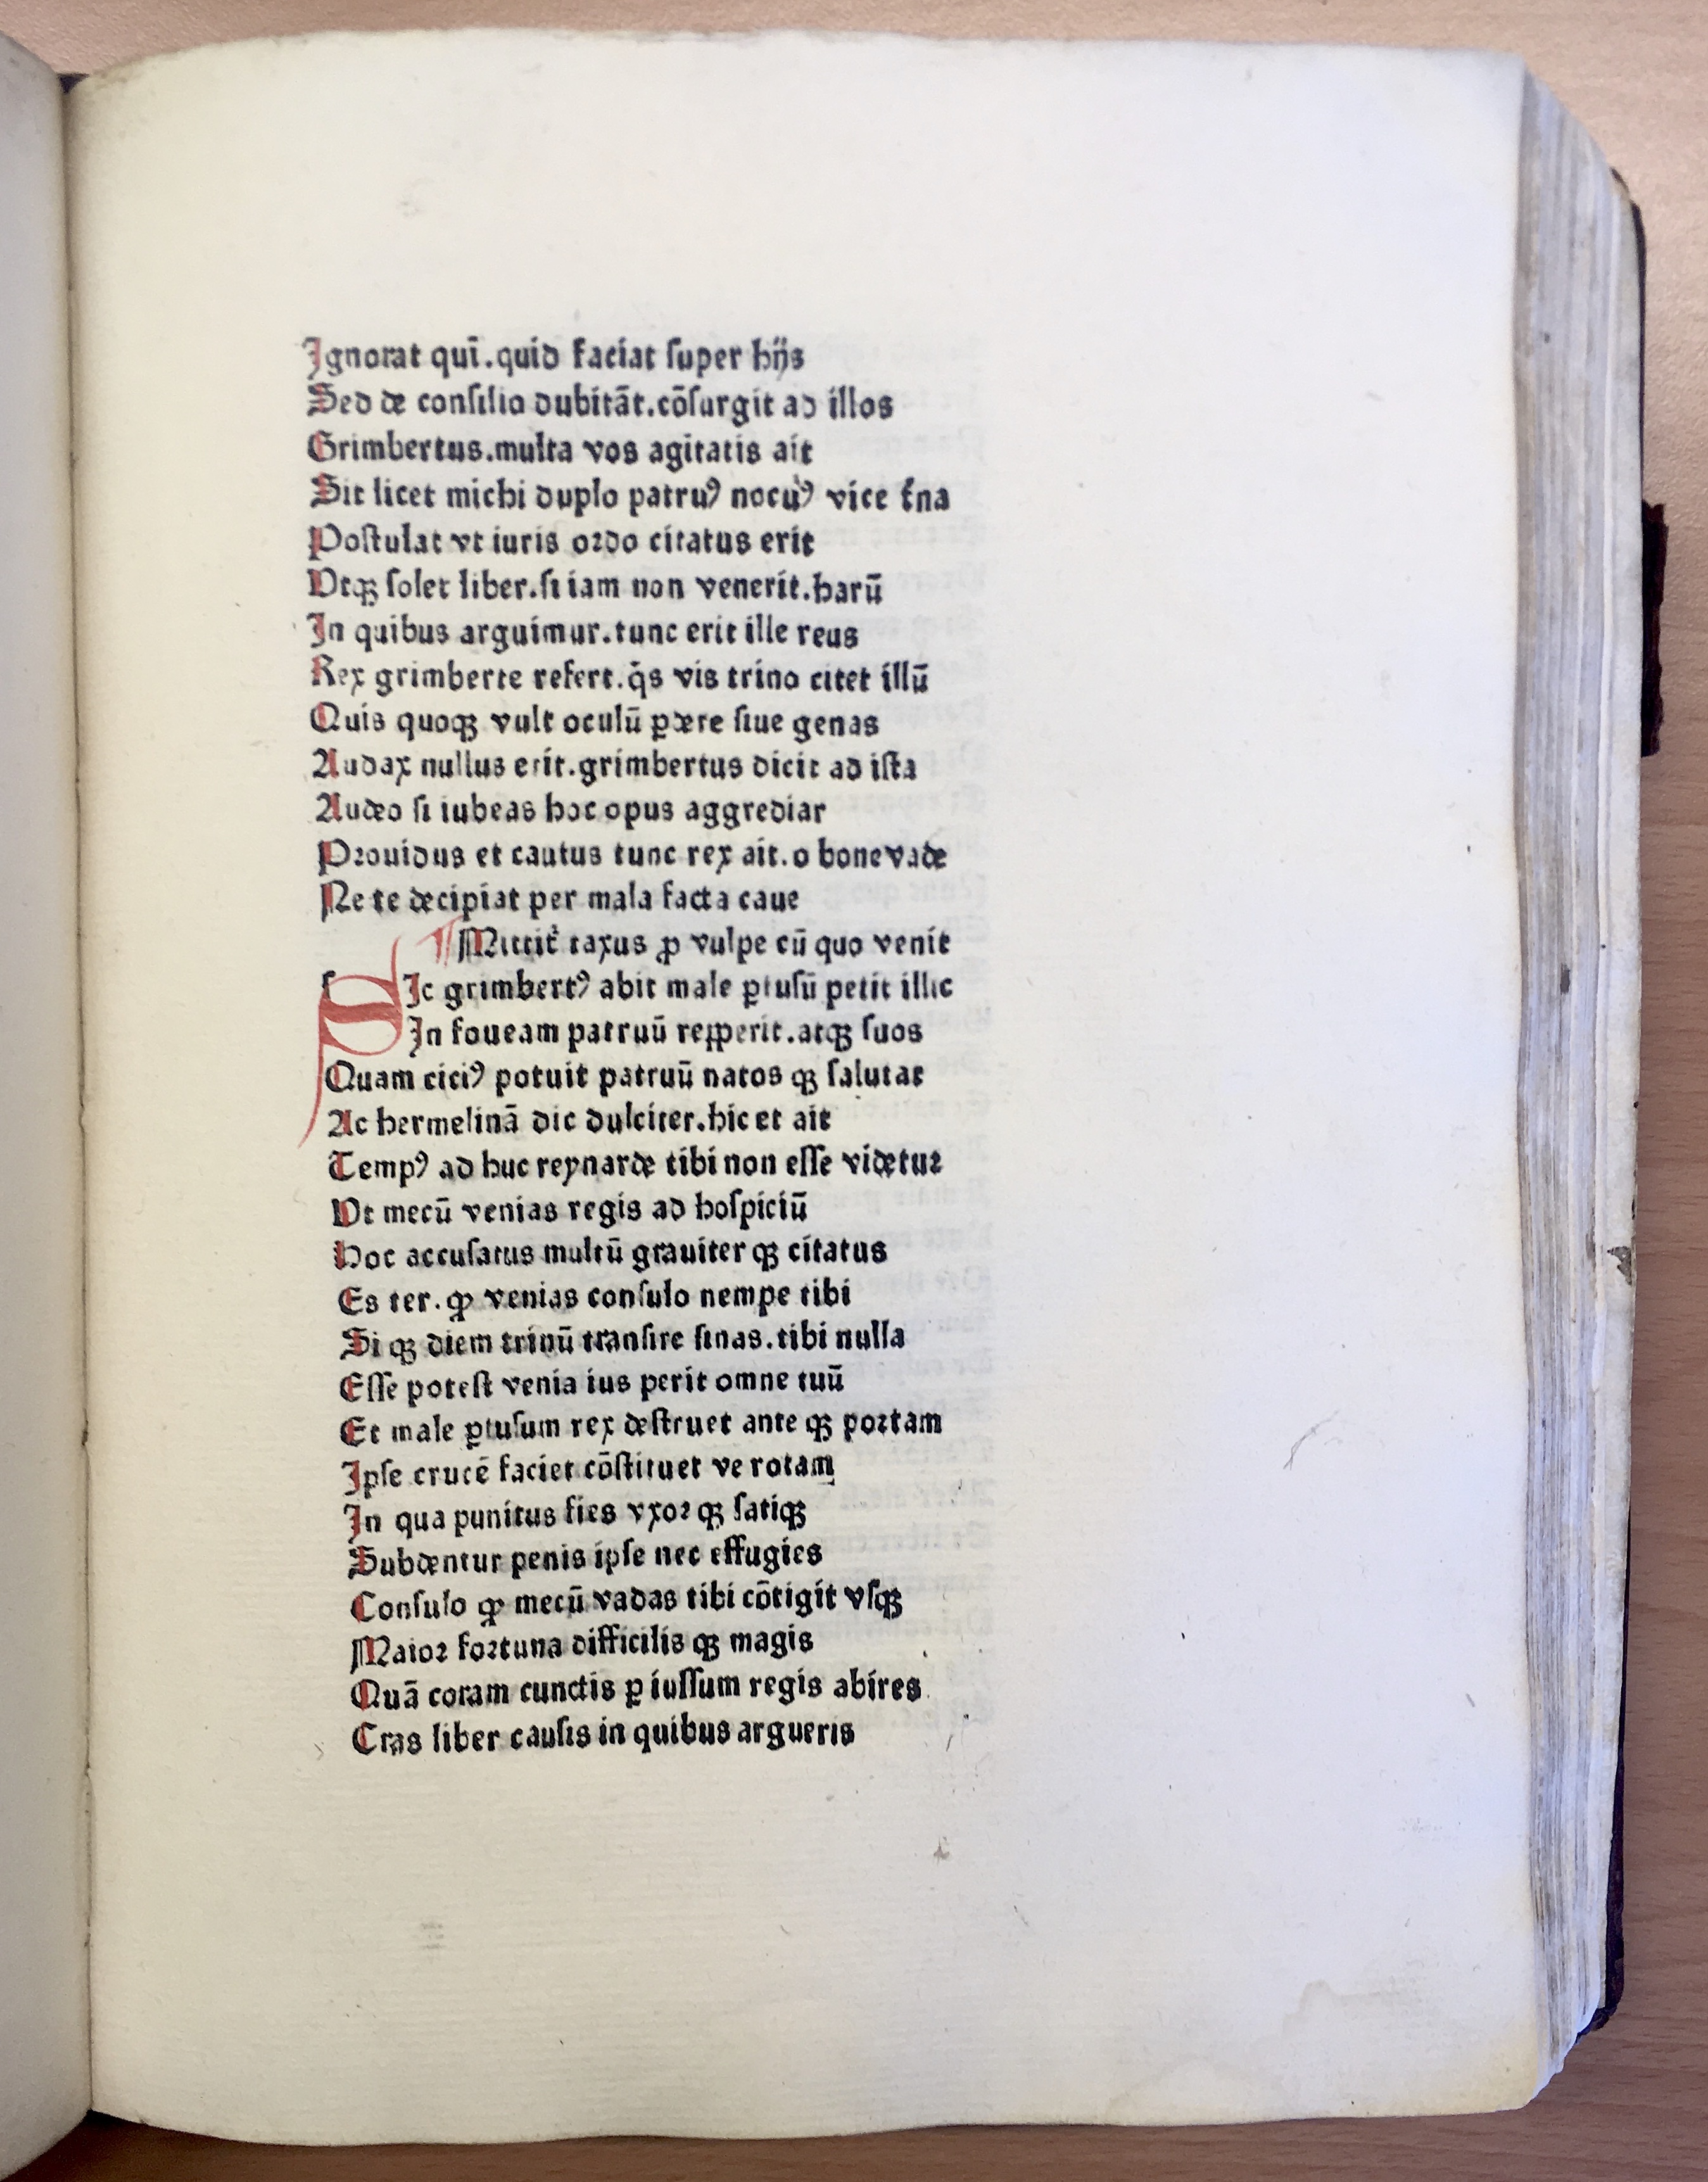 Ignorat qui̅.quid faciat ſuper hijs
Sed de conſilio dubitāt.cōſurgit ad illos
Grimbertus.multa vos agitatis ait
Sit licet michi duplo patruꝰ nocuꝰ vice
Poſtulat vt iuris ordo citatus erit
Vtqꝫ ſolet liber.ſi iam non venerit.harū
In quibus arguimur.tunc erit ille reus
Rex grimberte refert.q̇s vis trino citet illū
Quis quoqꝫ vult oculū ꝑdere ſiue genas
Audax nullus erit.grimbertus dicit ad iſta
Audeo ſi iubeas hoc opus aggrediar
Prouidus et cautus tunc rex ait.o bone vade
Ne te decipiat per mala facta caue
¶ Mittit᷑ taxus ꝓ vulpe cū quo venit
SIc grimbertꝰ abit male ꝑtuſū petit illic
In foueam patruū reꝑperit.atqꝫ ſuos
Quam ciciꝰ potuit patruū natos qꝫ ſalutat
Ac hermelinā dic dulciter.hic et ait
Tempꝰ ad huc reynarde tibi non eſſe videtur
Vt mecū venias regis ad hoſpiciū
Hoc accuſatus multū grauiter qꝫ citatus
Es ter.ꝙ venias conſulo nempe tibi
Si qꝫ diem trinū tranſire ſinas.tibi nulla
Eſſe poteſt venia ius perit omne tuū
Et male ꝑtuſum rex deſtruet ante qꝫ portam
Ipſe crucē faciet cōſtituet ve rotam
In qua punitus fies vxor qꝫ ſatiqꝫ
Subdentur penis ipſe nec effugies
Conſulo ꝙ mecū vadas tibi cōtigit vſqꝫ
Maior fortuna difficilis qꝫ magis
Quā coram cunctis ꝑ iuſſum regis abires
Cras liber cauſis in quibus argueris